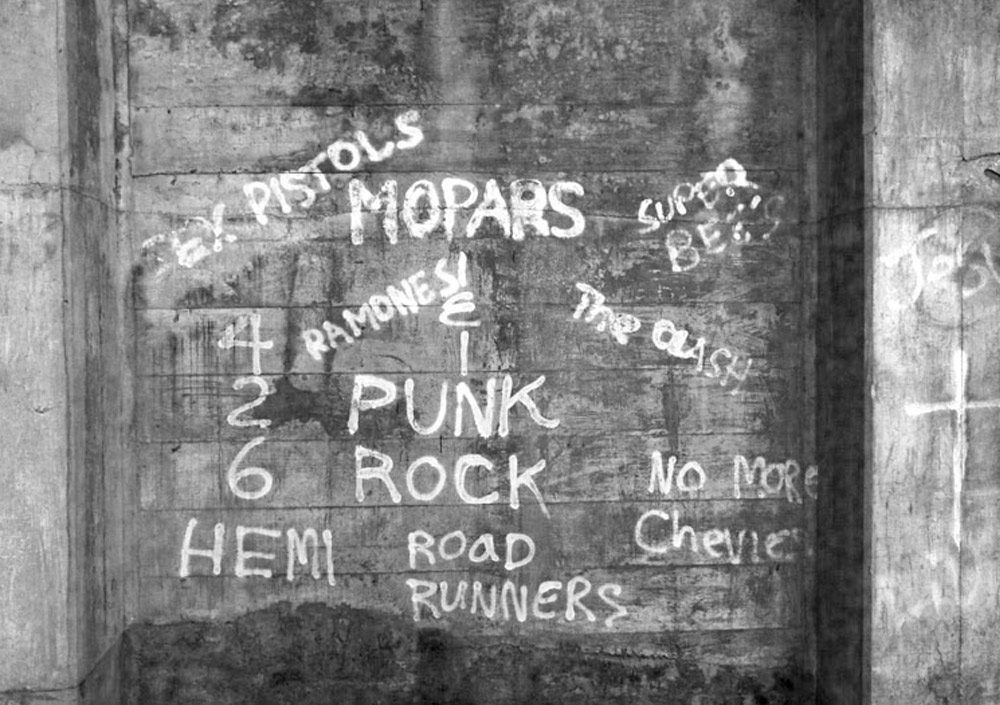 SEX PISTOLS
MOPARS
SUPER
BEES
RAMONES!
&
The CLASH
4
2
6
HEMI
PUNK
ROCK
ROAD
RUNNERS
NO MORE
Chevies